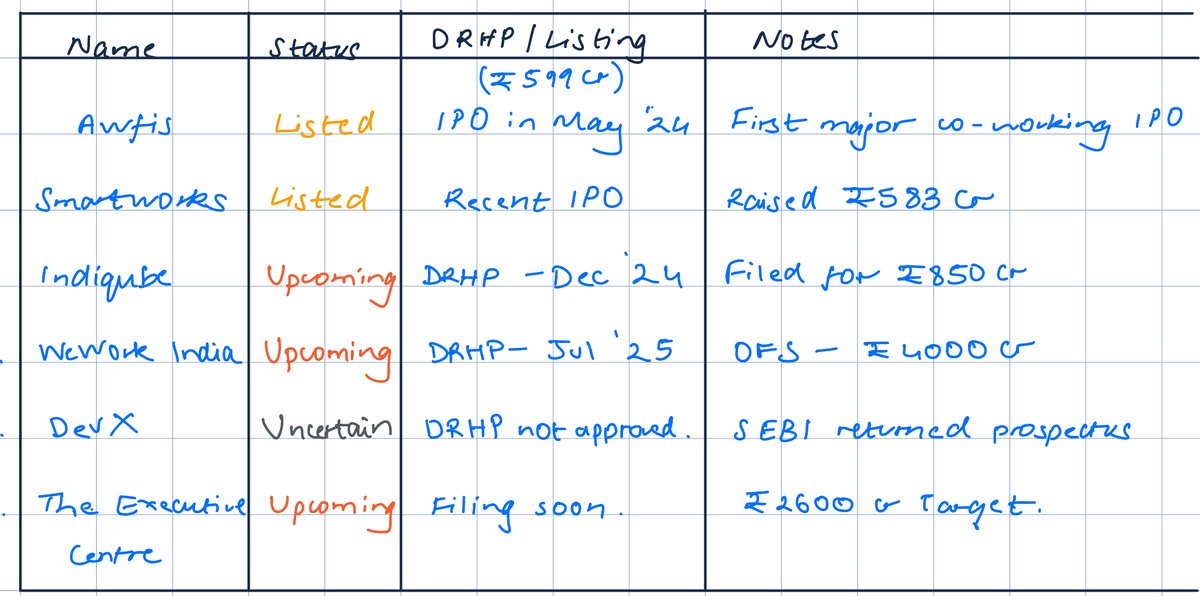 Name Status DRHP / Listing Notes
(₹599 Cr)
Awfis Listed IPO in May '24 First major co-working IPO
Smartworks Listed Recent IPO Raised ₹583 Cr
Indiqube Upcoming DRHP - Dec '24 Filed for ₹850 Cr
WeWork India Upcoming DRHP - Jul '25 OFS - ₹4000 Cr
DevX Uncertain DRHP not approved. SEBI returned prospectus
The Executive Upcoming Filing soon. ₹2600 Cr Target.
Centre